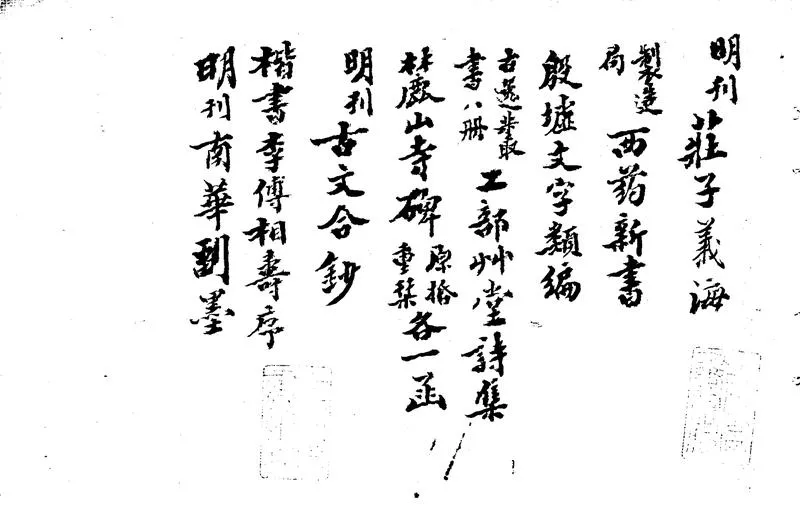 明刊莊子義海
製造局西药新書
殷墟文字類編
古逸叢書八册工部艸堂詩集
麻山寺碑原搨重栞各一函
明刊古文合鈔
楷書李傅相壽序
明刊南華副墨